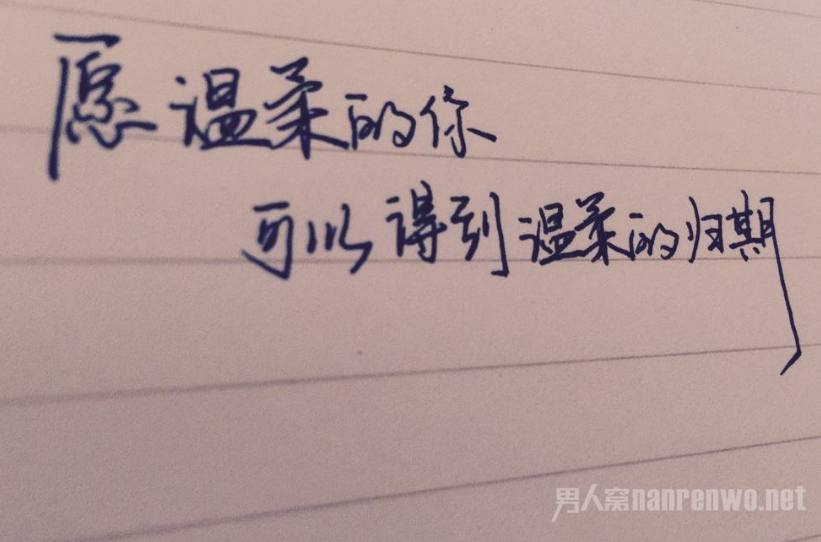 愿温柔的你
可以得到温柔的归期
男人窝nanrenwo.net